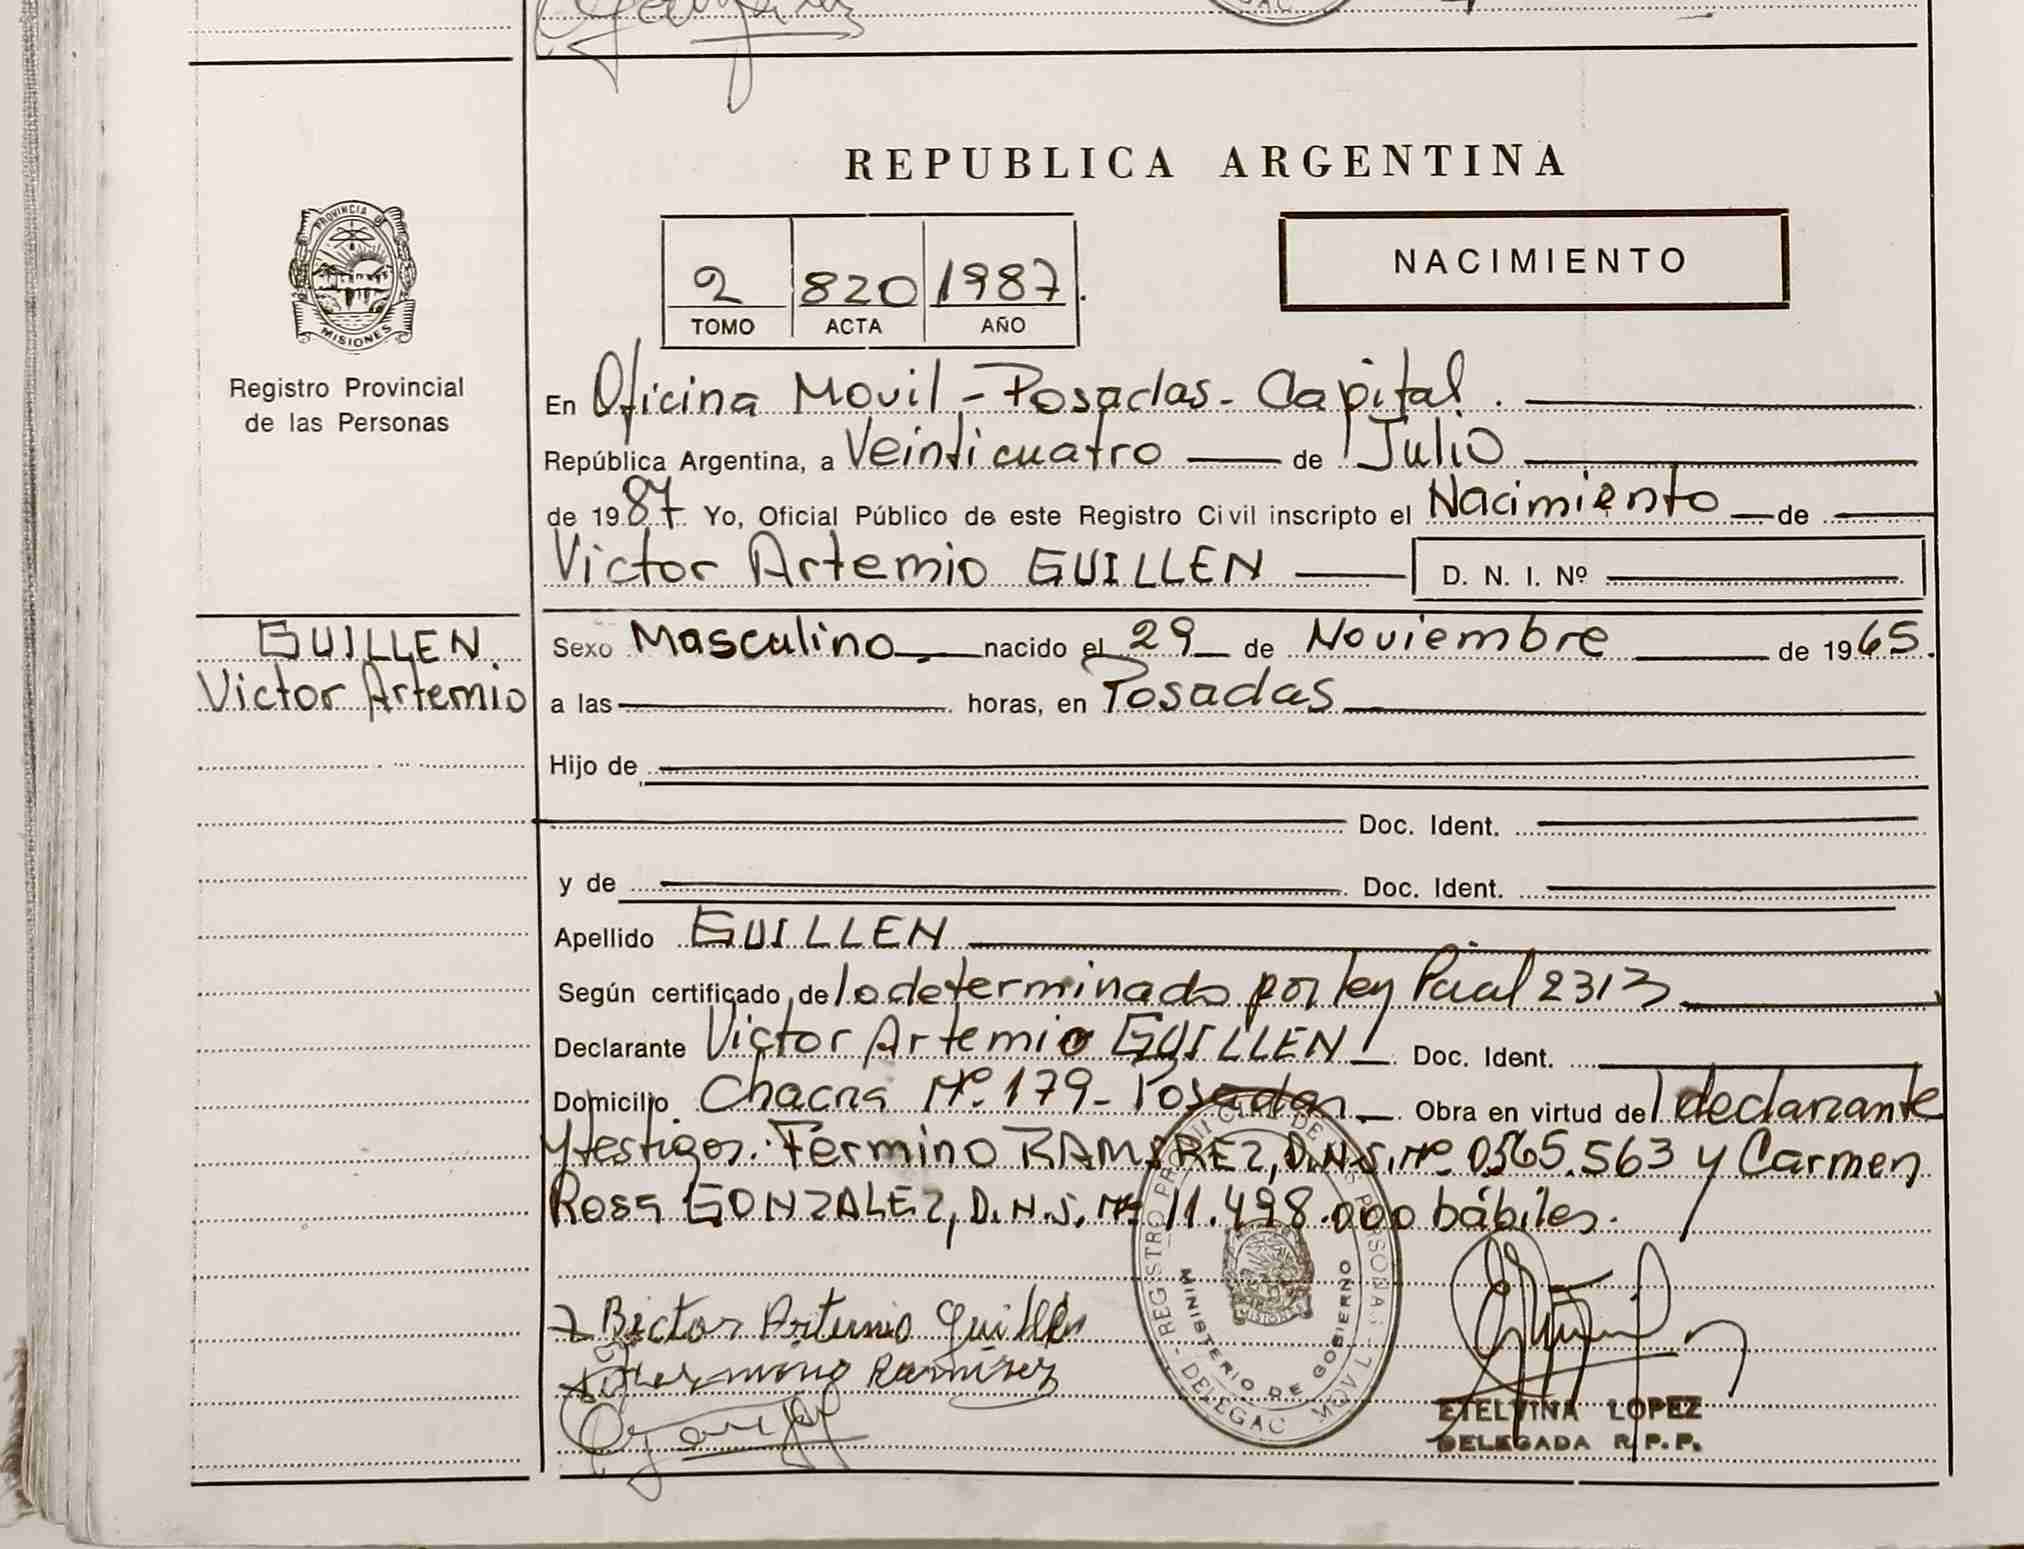 REPUBLICA ARGENTINA
NACIMIENTO
2 820 1987
TOMO ACTA AÑO
PROVINCIA DE
MISIONES
Registro Provincial
de las Personas
En Oficina Movil - Posadas - Capital.
República Argentina, a Veinticuatro de Julio
de 1987 Yo, Oficial Público de este Registro Civil inscripto el Nacimiento de
Victor Artemio GUILLEN D. N. I. Nº
GUILLEN
Victor Artemio
Sexo Masculino nacido el 29 de Noviembre de 1965.
a las horas, en Posadas
Hijo de
Doc. Ident.
y de Doc. Ident.
Apellido GUILLEN
Según certificado de lo determinado por ley Pcial 2313
Declarante Victor Artemio GUILLEN Doc. Ident.
Domicilio Chacra Nº 179 - Posadas Obra en virtud del declarante
y testigos: Fermino RAMIREZ, D.N.I. Nº y Carmen
Rosa GONZALEZ, D.N.I. Nº 11.498.000 hábiles.
REGISTRO PROVINCIAL DE LAS PERSONAS - DELEGAC MOVIL
MINISTERIO DE GOBIERNO
MISIONES
Bictor Artemio Guillen
Fermino Ramirez
ETELVINA LOPEZ
DELEGADA R.P.P.